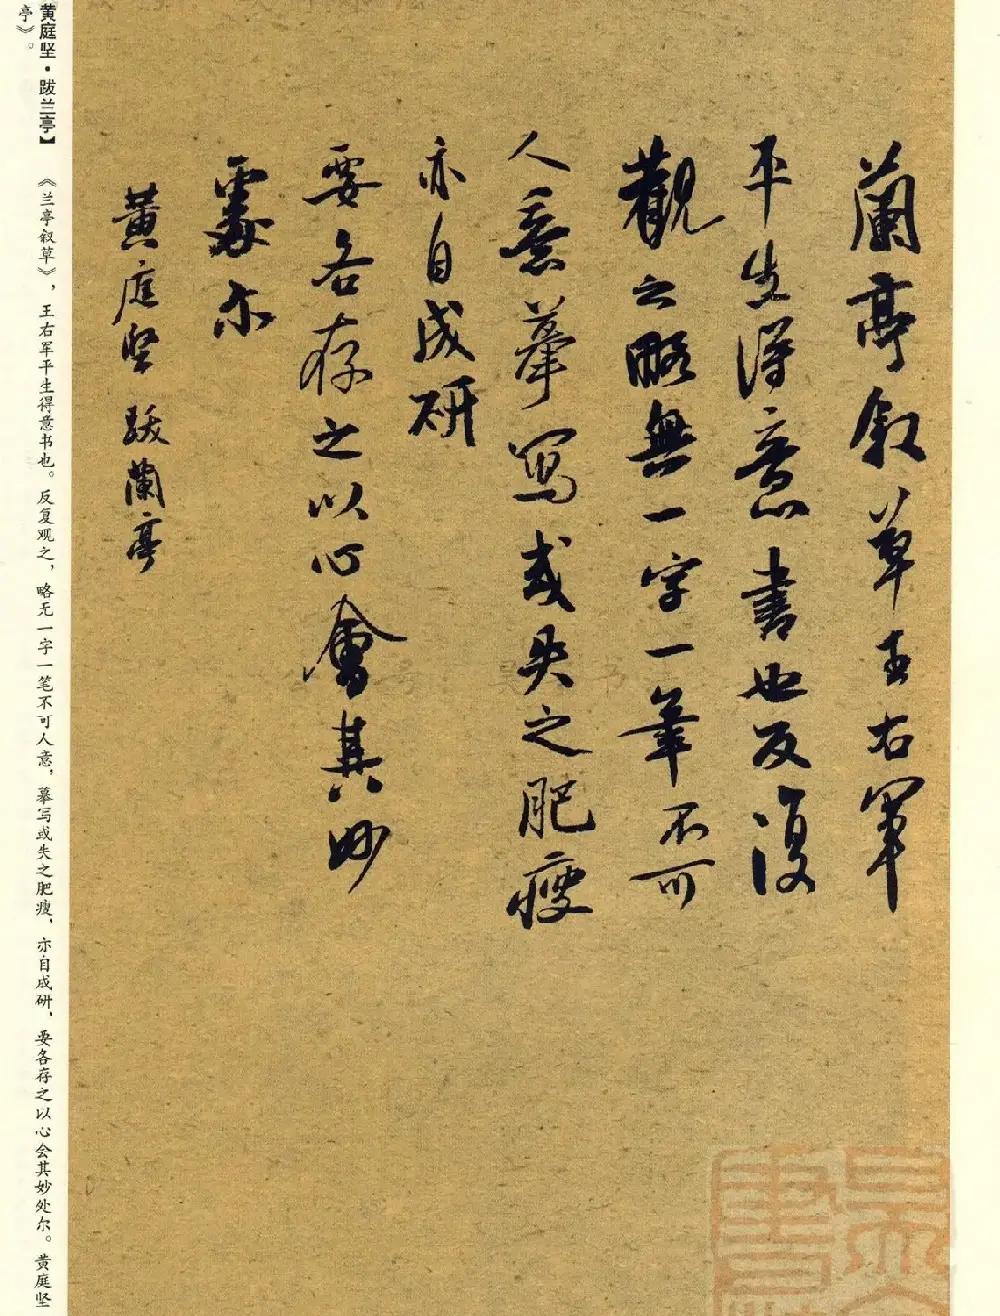 蘭亭叙草王右軍
平生得意書也反復
觀之略無一字一筆不可
人意摹寫或失之肥瘦
亦自成研
要各存之以心會其妙
處尔
黃庭坚跋蘭亭
黄庭坚·跋兰亭】 《兰亭叙草》，王右军平生得意书也。反复观之，略无一字一笔不可人意，摹写或失之肥瘦，亦自成研，要各存之以心会其妙处尔。黄庭坚
亭》。